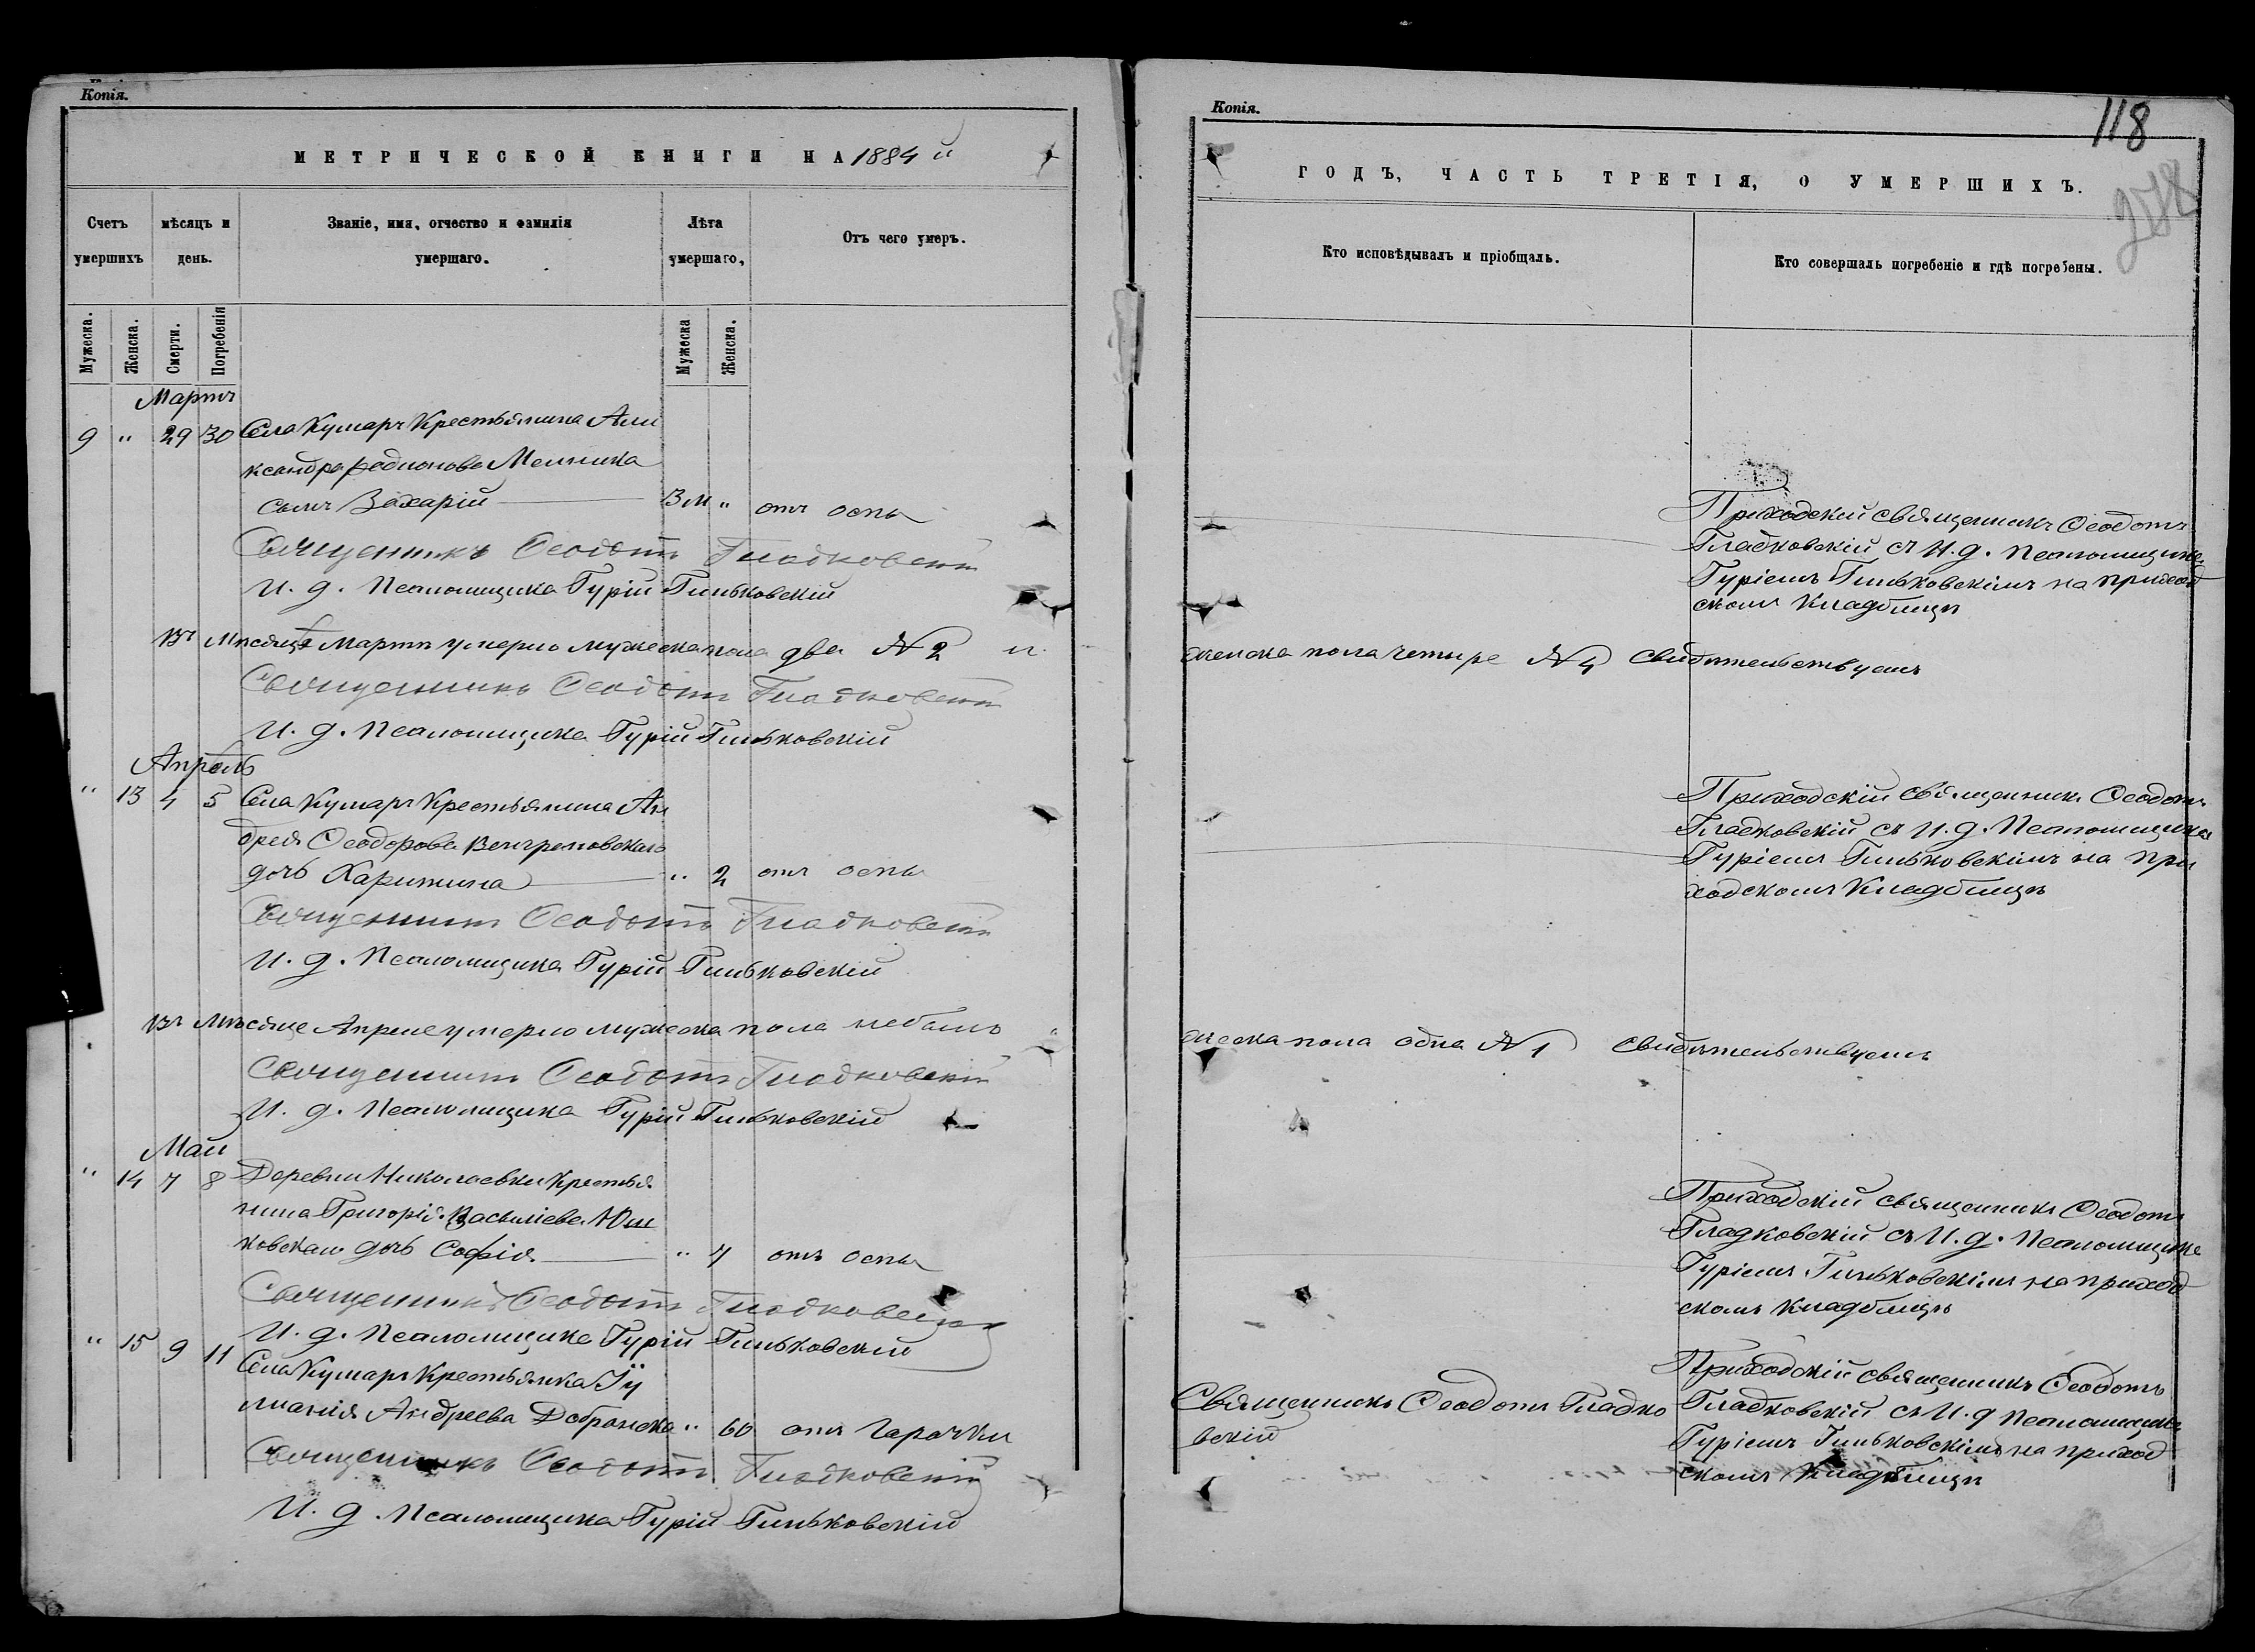 Копія.
МЕТРИЧЕСКОЙ КНИГИ НА 1884 й
Счетъ умершихъ
мѣсяцъ и день.
Званіе, имя, отчество и фамилія умершаго.
Лѣта умершаго,
Отъ чего умеръ.
Мужеска.
Женска.
Смерти.
Погребенія
Мужеска
Женска.
Мартъ
9 " 29 30 Села Кумаръ Крестьянина Але
ксандра Родионова Мельника
сынъ Захарій 3 м " отъ оспы
Священникъ Ѳеодотъ Гладковскій
И. д. Псаломщика Гурій Гиньковскій
Въ Мѣсяцѣ Мартѣ умерло мужеска пола два № 2 и
Священникъ Ѳеодотъ Гладковскій
И. д. Псаломщика Гурій Гиньковскій
Апрѣль
" 13 4 5 Села Кумаръ Крестьянина Ан
дрея Ѳеодорова Венгреновскаго
дочь Харитина " 2 отъ оспы
Священникъ Ѳеодотъ Гладковскій
И. д. Псаломщика Гурій Гиньковскій
Въ Мѣсяце Апреле умерло мужеска пола небыло
Священникъ Ѳеодотъ Гладковскій
И. д. Псаломщика Гурій Гиньковскій
Май
" 14 7 8 Деревни Николаевки Крестья
нина Григорія Василіева Юш
ковскаго дочь Софія " 7 отъ оспы
Священникъ Ѳеодотъ Гладковскій
И. д. Псаломщика Гурій Гиньковскій
" 15 9 11 Села Кумаръ Крестьянка Іу
лианія Андреева Добранска " 60 отъ Гарачки
Священникъ Ѳеодотъ Гладковскій
И. д. Псаломщика Гурій Гиньковскій
Копія.
118
278
ГОДЪ, ЧАСТЬ ТРЕТІЯ, О УМЕРШИХЪ.
Кто исповѣдывалъ и пріобщалъ.
Кто совершалъ погребеніе и гдѣ погребены.
Приходскій священникъ Ѳеодотъ
Гладковскій съ И. д. Псаломщика
Гуріемъ Гиньковскімъ на приход
скомъ Кладбищѣ
женска пола четыре № 4 свидѣтельствуемъ
Приходскій священникъ Ѳеодотъ
Гладковскій съ И. д. Псаломщика
Гуріемъ Гиньковскімъ на при
ходскомъ Кладбищѣ
женска пола одна № 1 свидѣтельствуемъ
Приходскій священникъ Ѳеодотъ
Гладковскій съ И. д. Псаломщика
Гуріемъ Гиньковскімъ на приход
скомъ Кладбищѣ
Священникъ Ѳеодотъ Гладко
вскій
Приходскій священникъ Ѳеодотъ
Гладковскій съ И. д Псаломщика
Гуріемъ Гиньковскімъ на приход
скомъ Кладбищѣ